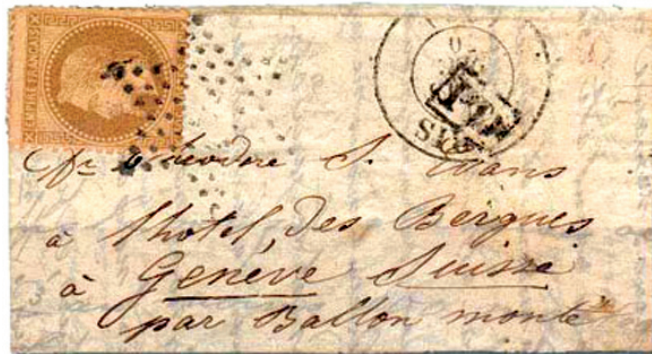 EMPIRE FRANÇAIS
P.D.
Mr Theodore S. Evans
à l'hotel, des Bergues
à Genève Suisse
par Ballon monté